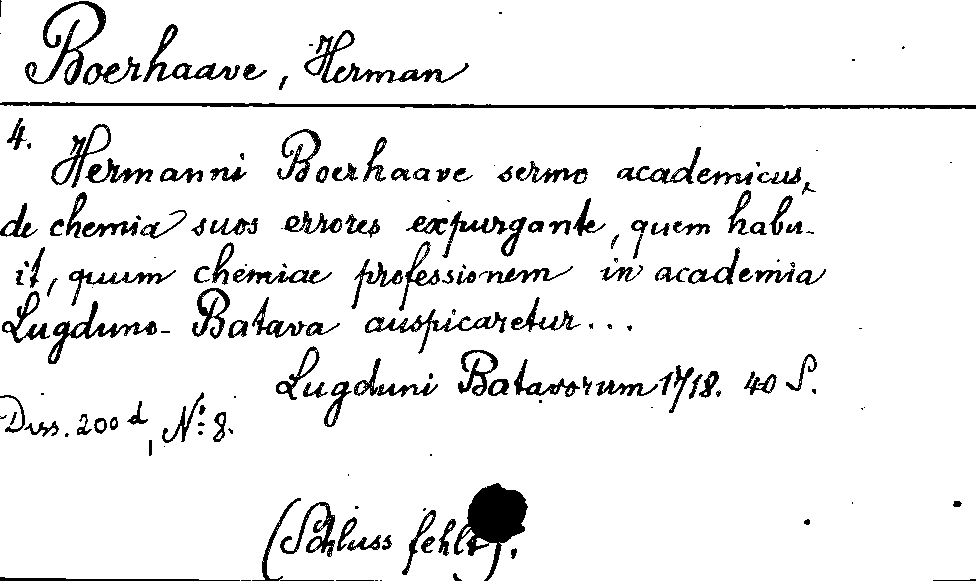 Boerhaave, Herman
4.
Hermanni Boerhaave sermo academicus,
de chemia suos errores expurgante, quem habu-
it, quum chemiae professionem in academia
Lugduno-Batava auspicaretur...
Lugduni Batavorum 1718. 40 S.
Diss. 200 d, No. 8.
(Schluss fehlt).